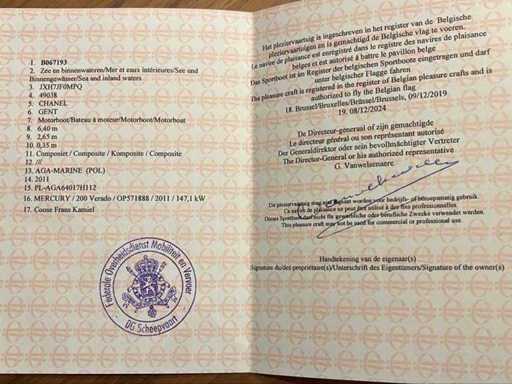 1. B067193
2. Zee en binnenwateren/Mer et eaux intérieures/See und
Binnengewässer/Sea and inland waters
3. JXH7JF0MPQ
4. 49038
5. CHANEL
6. GENT
7. Motorboot/Bateau à moteur/Motorboot/Motorboat
8. 6,40 m
9. 2,65 m
10. 0,35 m
11. Composiet / Composite / Komposite / Composite
12. ///
13. AGA-MARINE (POL)
14. 2011
15. PL-AGA64017H112
16. MERCURY / 200 Verado / OP571888 / 2011 / 147,1 kW
17. Coose Frans Kamiel
Federale Overheidsdienst Mobiliteit en Vervoer
DG Scheepvaart
Het pleziervaartuig is ingeschreven in het register van de Belgische
pleziervaartuigen en is gemachtigd de Belgische vlag te voeren.
Le navire de plaisance est enregistré dans le registre des navires de plaisance
belges et est autorisé à battre le pavillon belge
Das Sportboot ist im Register der belgischen Sportboote eingetragen und darf
unter belgischer Flagge fahren
The pleasure craft is registered in the register of Belgian pleasure crafts and is
authorized to fly the Belgian flag
18. Brussel/Bruxelles/Brüssel/Brussels, 09/12/2019
19. 08/12/2024
De Directeur-generaal of zijn gemachtigde
Le directeur général ou son représentant autorisé
Der Generaldirektor oder sein bevollmächtigter Vertreter
The Director-General or his authorized representative
G. Vanwelsenaere
De pleziervaartuig mag niet gebruikt worden voor bedrijfs- of beroepsmatig gebruik
Ce navire de plaisance ne peut être utilisé à des fins professionnelles
Dieses Sportboot darf nicht für gewerbliche oder berufliche Zwecke verwendet werden.
This pleasure craft may not be used for commercial or professional use
Handtekening van de eigenaar(s)
Signature du/des propriétaire(s)/Unterschrift des Eigentümers/Signature of the owner(s)